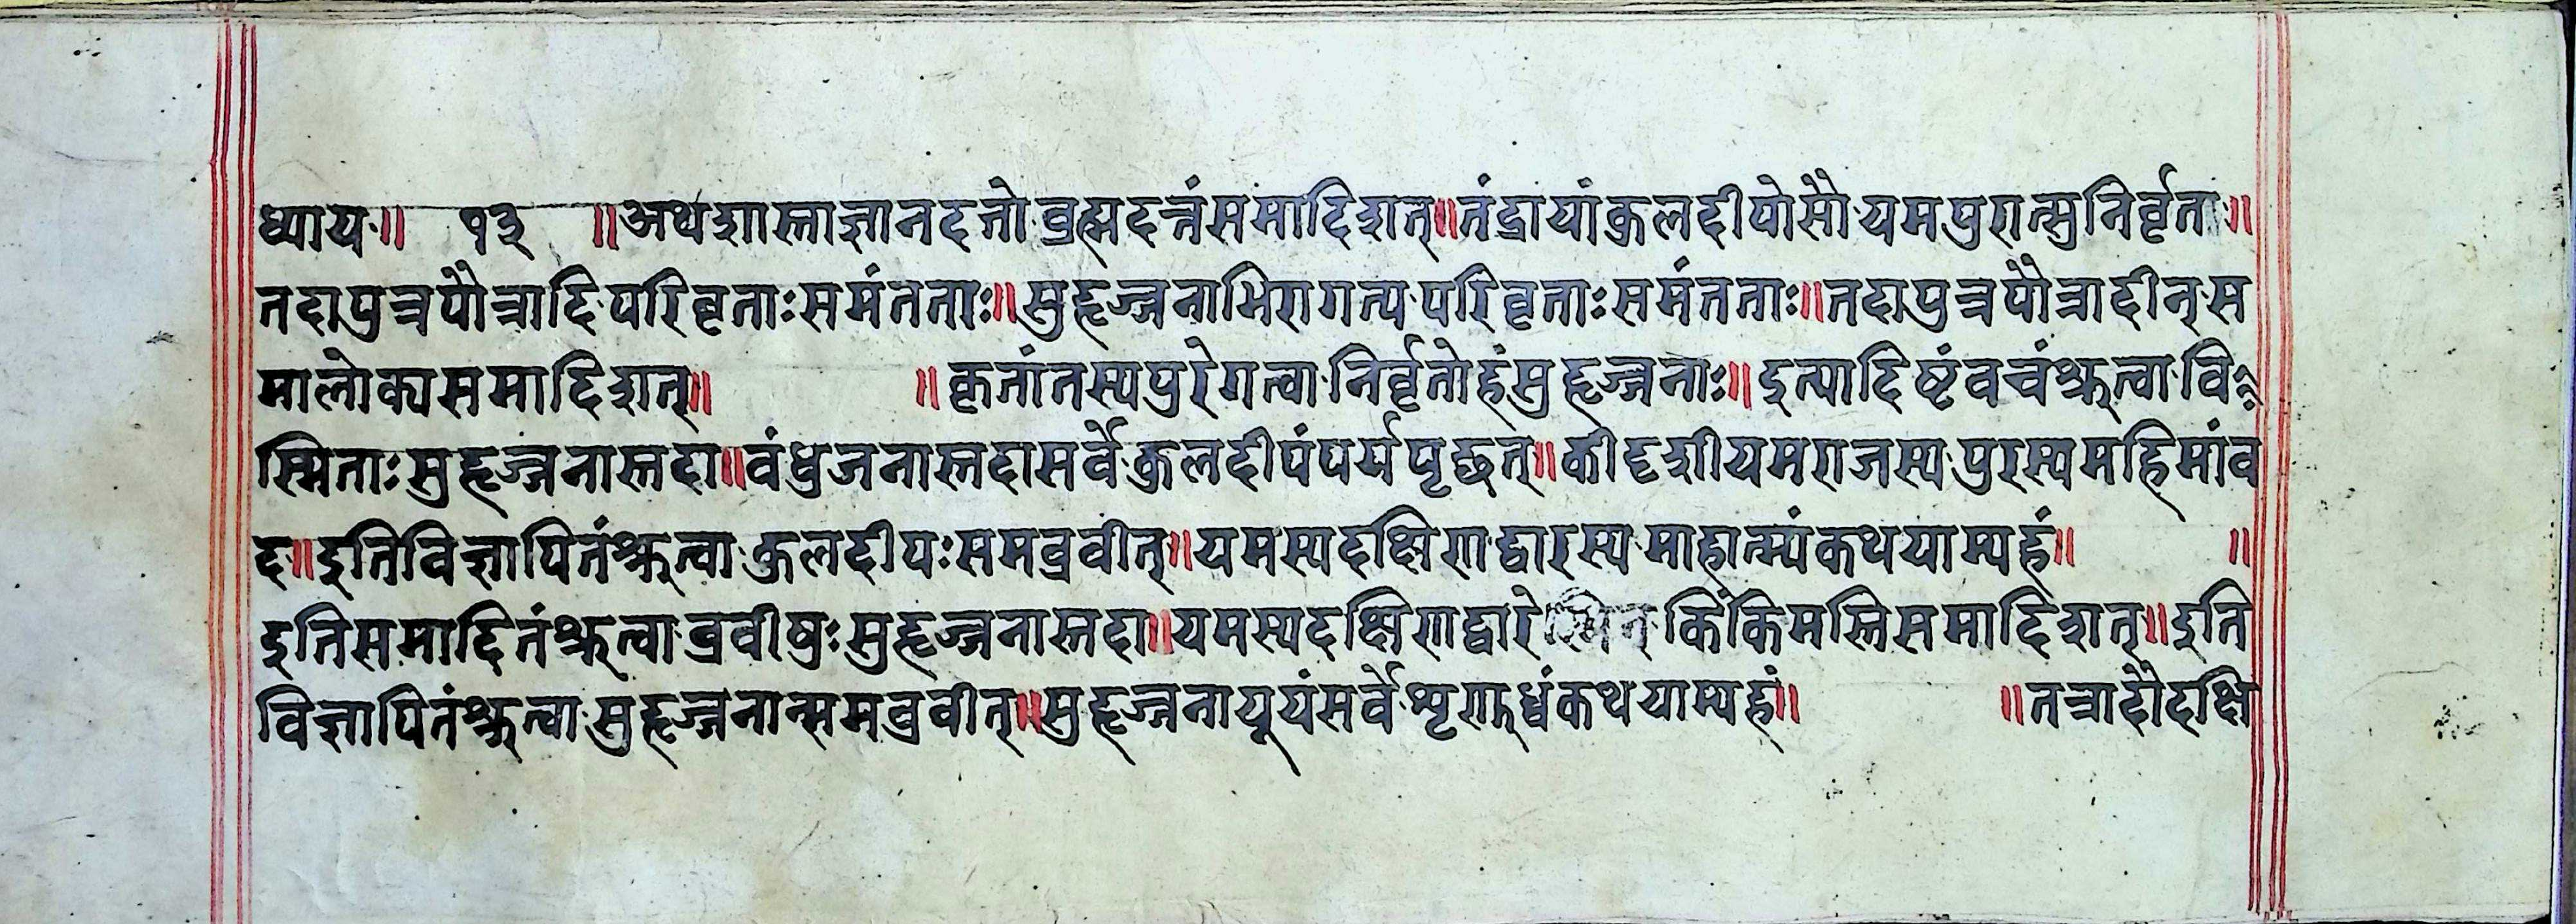 ध्यायः॥ १३ ॥अथशास्ताज्ञानदत्तोब्रह्मदत्तंसमादिशत्॥तंद्रायांकुलदीपोसौयमपुरात्सुनिर्वृताः॥
तदापुत्रपौत्रादिपरिवृताःसमंतताः॥सुहृज्जनाभिरागत्यपरिवृताःसमंतताः॥तदापुत्रपौत्रादीन्स
मालोक्यसमादिशत्॥ ॥कृतांतस्यपुरेगत्वानिर्वृतोहंसुहृज्जनाः॥इत्यादिष्टंवचंश्रुत्वावि
स्मिताःसुहृज्जनास्तदा॥वंधुजनास्तदासर्वेकुलदीपंपर्यपृछत्॥कीदृशीयमराजस्यपुरस्यमहिमांव
द॥इतिविज्ञापितंश्रुत्वाकुलदीपःसमब्रवीत्॥यमस्यदक्षिणद्वारस्यमाहात्म्यंकथयाम्यहं॥ ॥
इतिसमादितंश्रुत्वाब्रवीषुःसुहृज्जनास्तदा॥यमस्यदक्षिणद्वारे किंकिमस्तिसमादिशत्॥इति
विज्ञापितंश्रुत्वासुहृज्जनान्समब्रवीत्॥सुहृज्जनायूयंसर्वेशृणुध्वंकथयाम्यहं॥ ॥तत्रादौदक्षि